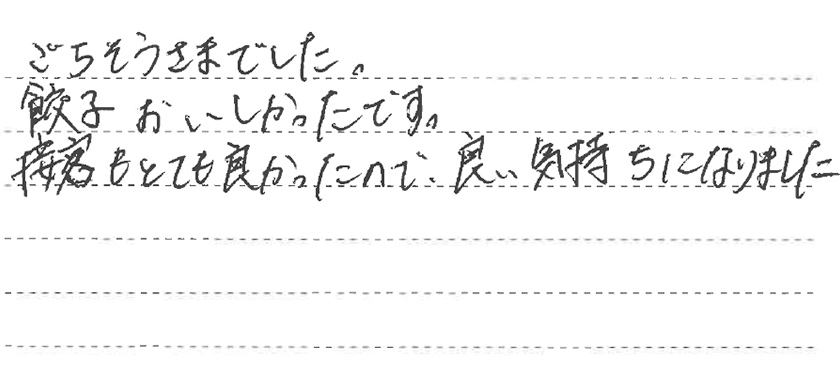 ごちそうさまでした。
餃子おいしかったです。
接客もとても良かったので、良い気持ちになりました